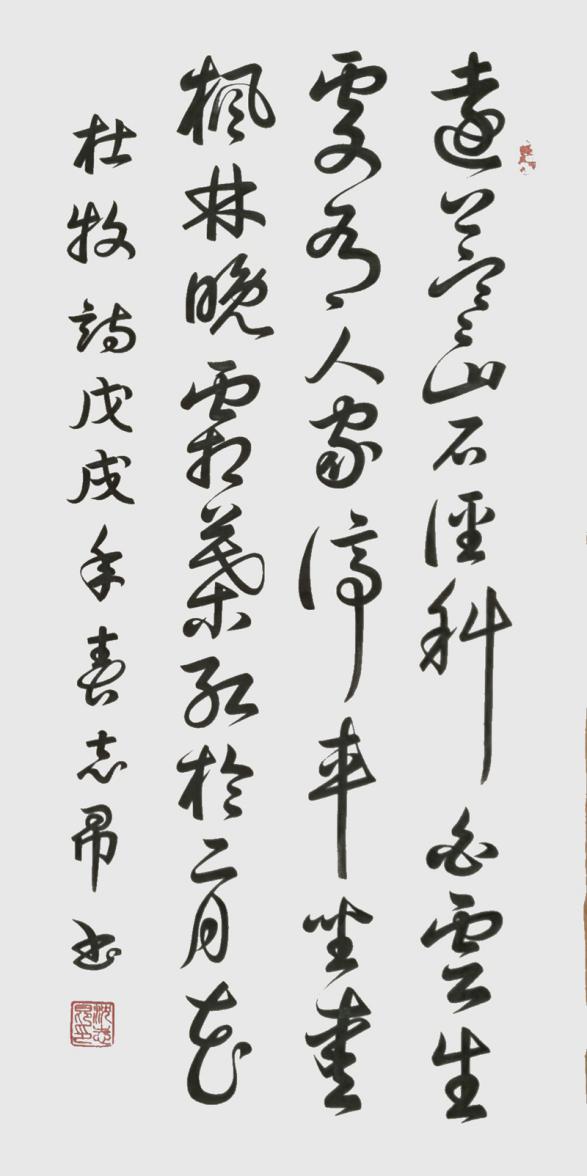 遠上寒山石徑斜白雲生
處有人家停車坐愛
楓林晚霜葉紅於二月花
杜牧詩戊戌年春志昂書